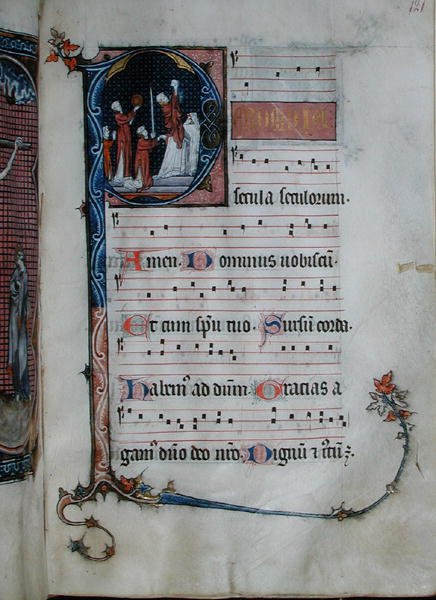 121
P
secula seculorum.
Amen. Dominus vobiscū.
Et cum spū tuo. Sursū corda.
Habem' ad dnm̄. Gracias a
gam' dn̄o deo nr̄o. Dignū ⁊ istū